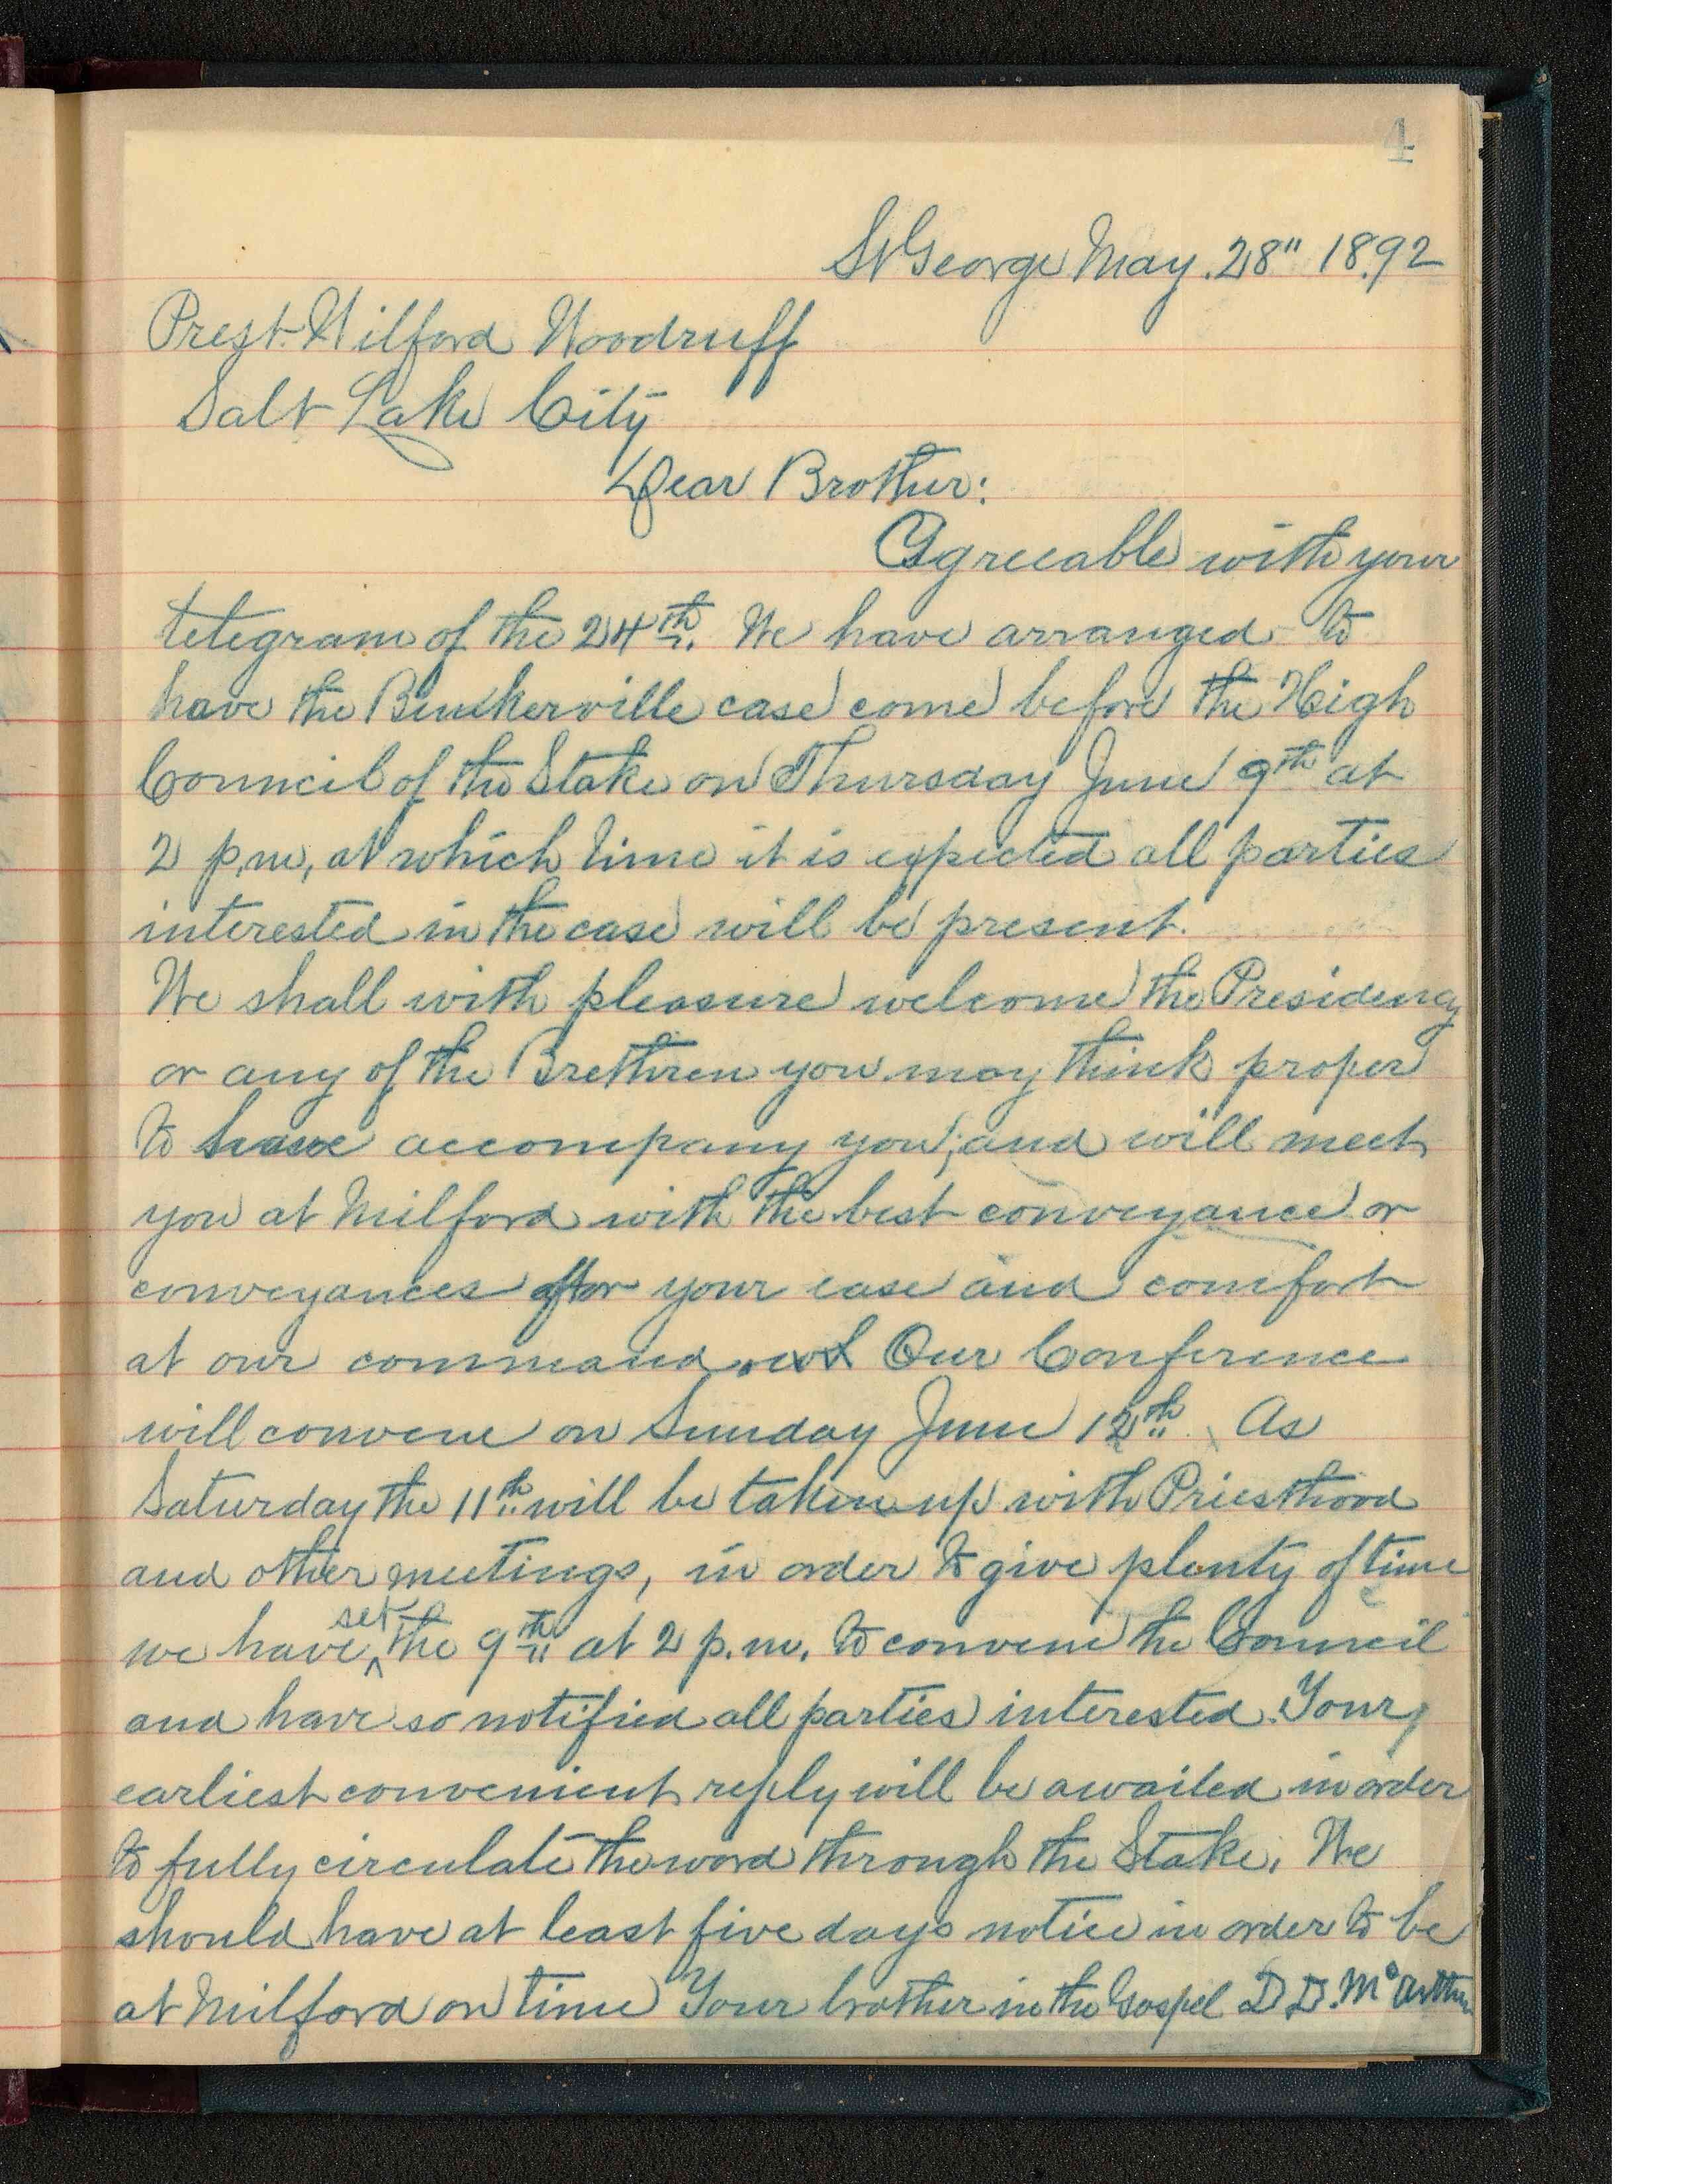 4
St George May. 28" 1892
Prest. Wilford Woodruff
Salt Lake City
Dear Brother:
Agreeable with your
telegram of the 24th. We have arranged to
have the Bunkerville case come before the High
Council of the Stake on Thursday June 9th at
2 p.m, at which time it is expected all parties
interested in the case will be present.
We shall with pleasure welcome the Presidency
or any of the Brethren you may think proper
to have accompany you; and will meet
you at Milford with the best conveyance or
conveyances for your ease and comfort
at our command. Our Conference
will convene on Sunday June 12th. As
Saturday the 11th will be taken up with Priesthood
and other meetings, in order to give plenty of time
we have set the 9th at 2 p.m. to convene the Council
and have so notified all parties interested. Your
earliest convenient reply will be awaited in order
to fully circulate the word through the Stake. We
should have at least five days notice in order to be
at Milford on time Your brother in the Gospel D D. McArthur